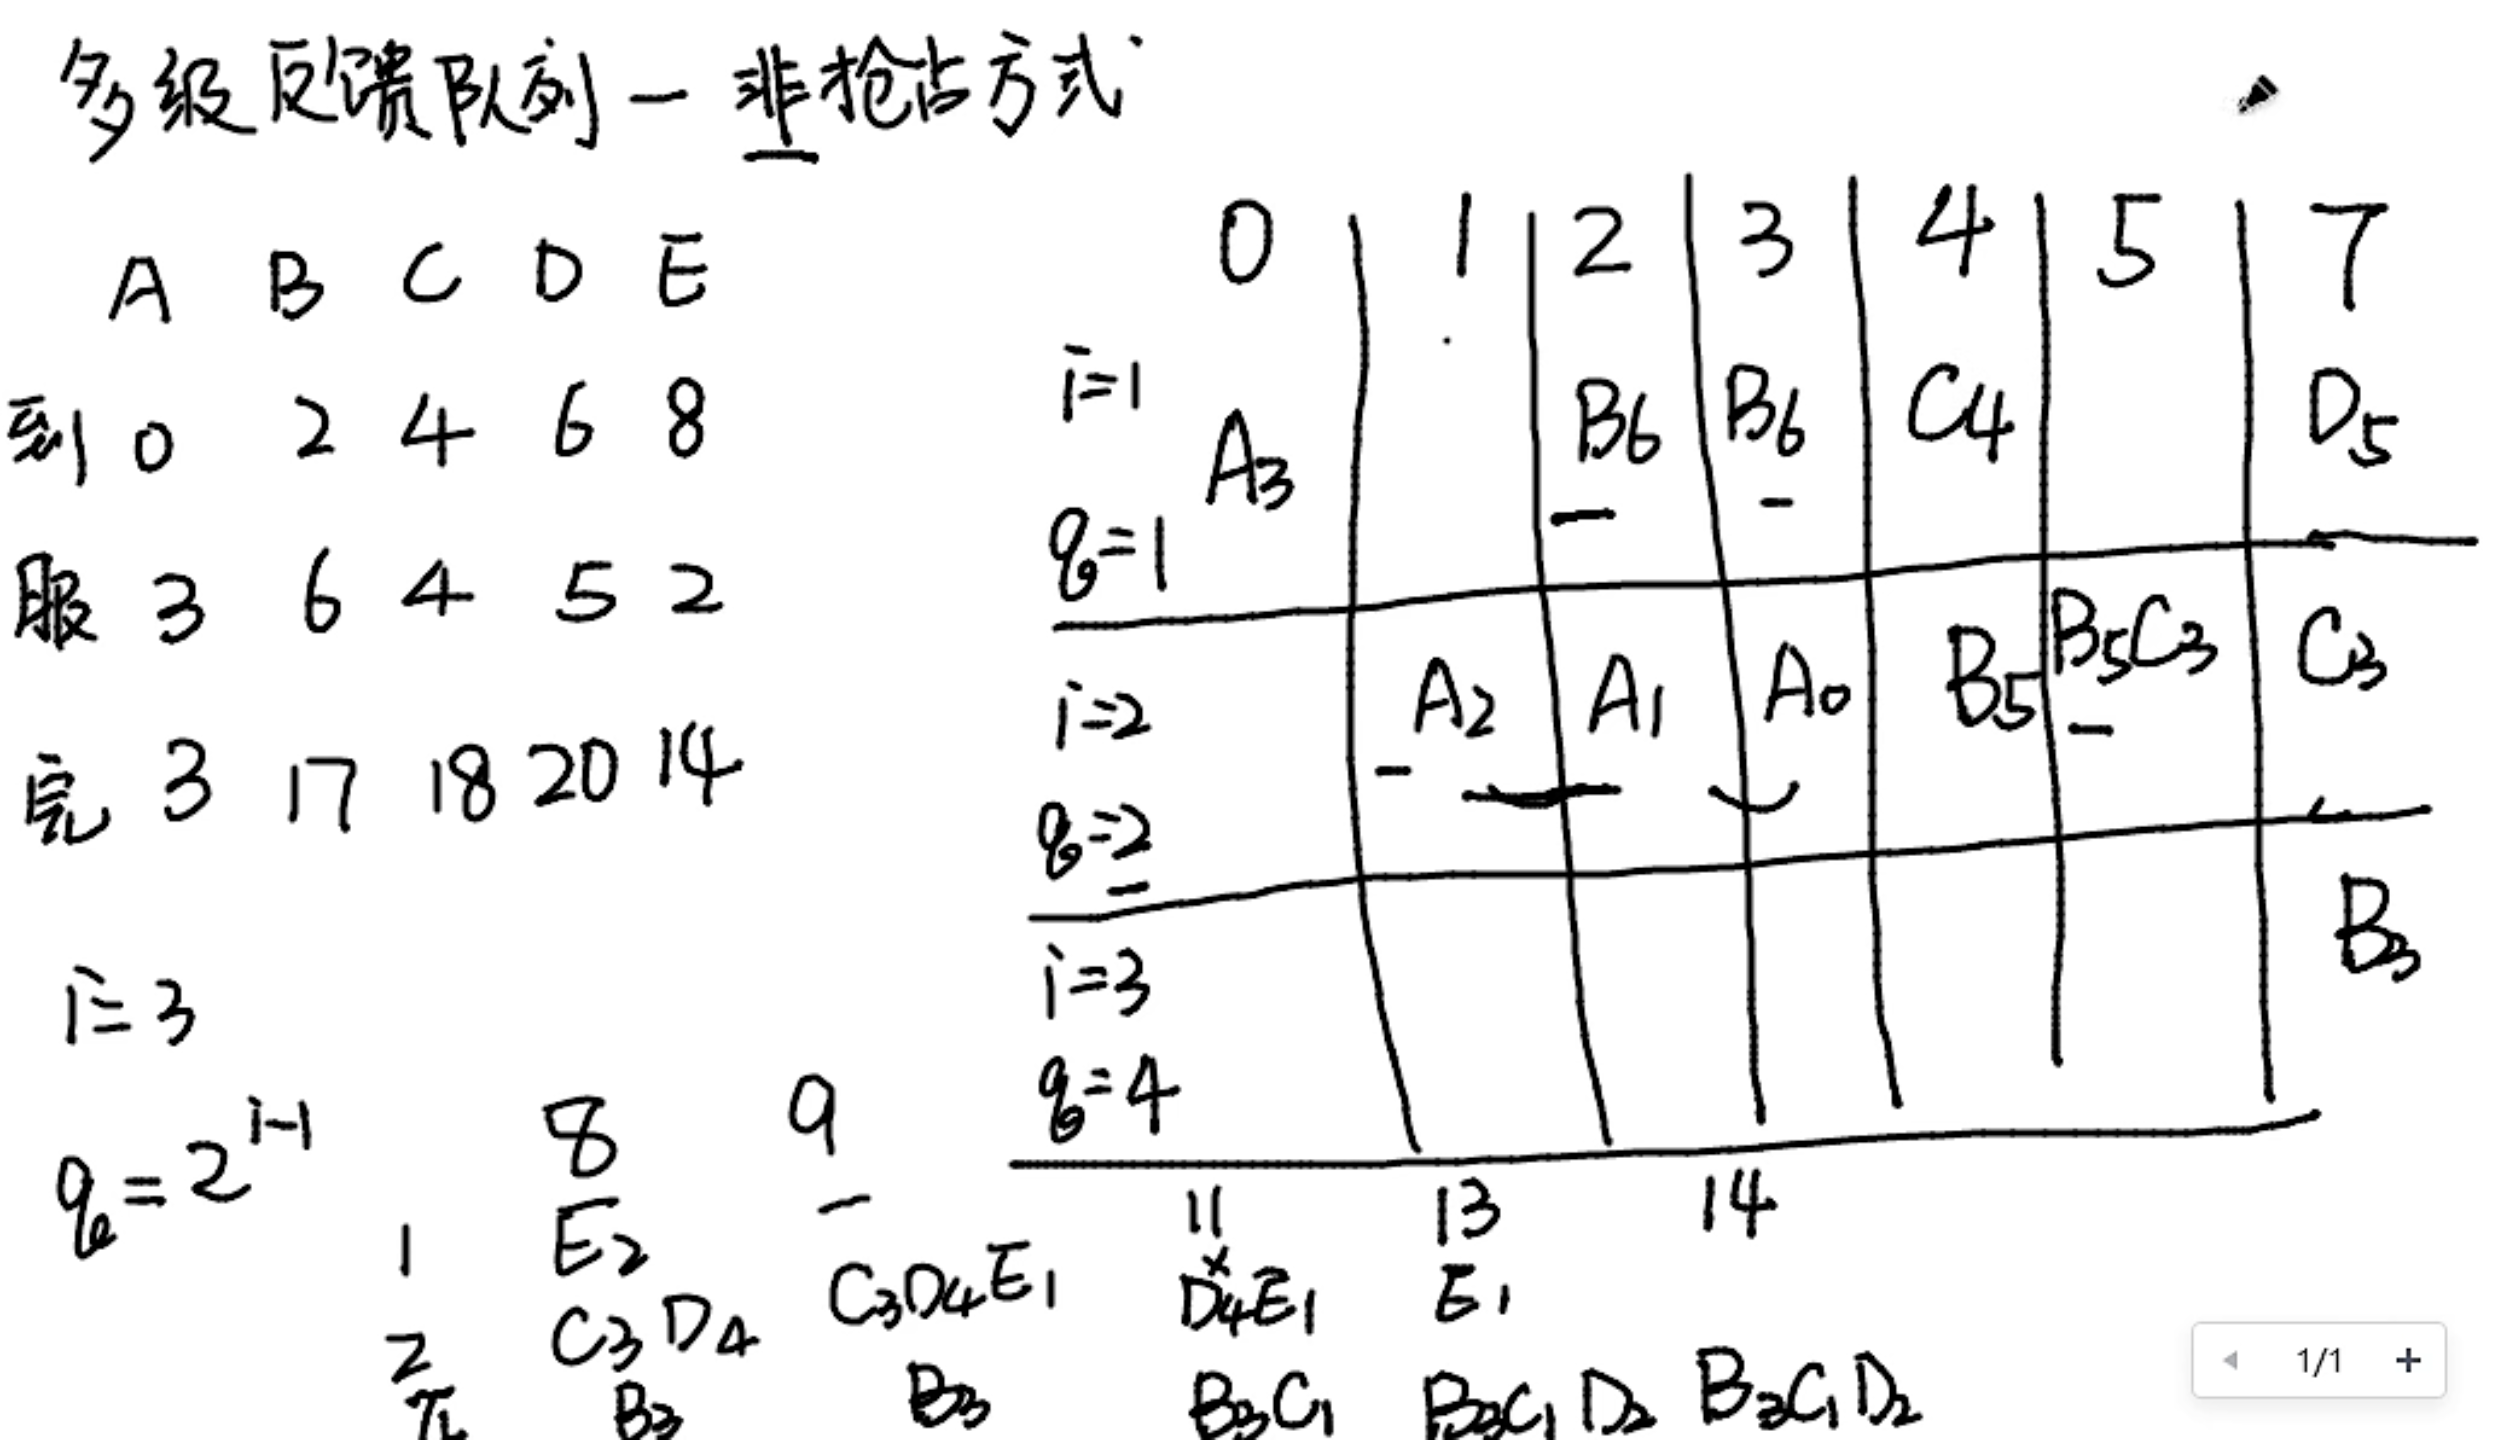 多级反馈队列—非抢占方式
A B C D E
到 0 2 4 6 8
服 3 6 4 5 2
完 3 17 18 20 14
i=3
q=2^{i-1}
0 1 2 3 4 5 7
i=1
A3 B6 B6 C4 D5
q=1
i=2 A2 A1 A0 B5 B5C3 C3
q=2
i=3 B3
q=4
8 9 11 13 14
1 E2
2 C3D4 C3D4E1 D4E1 E1
B3 B3 B3C1 B3C1D2 B3C1D2
1/1